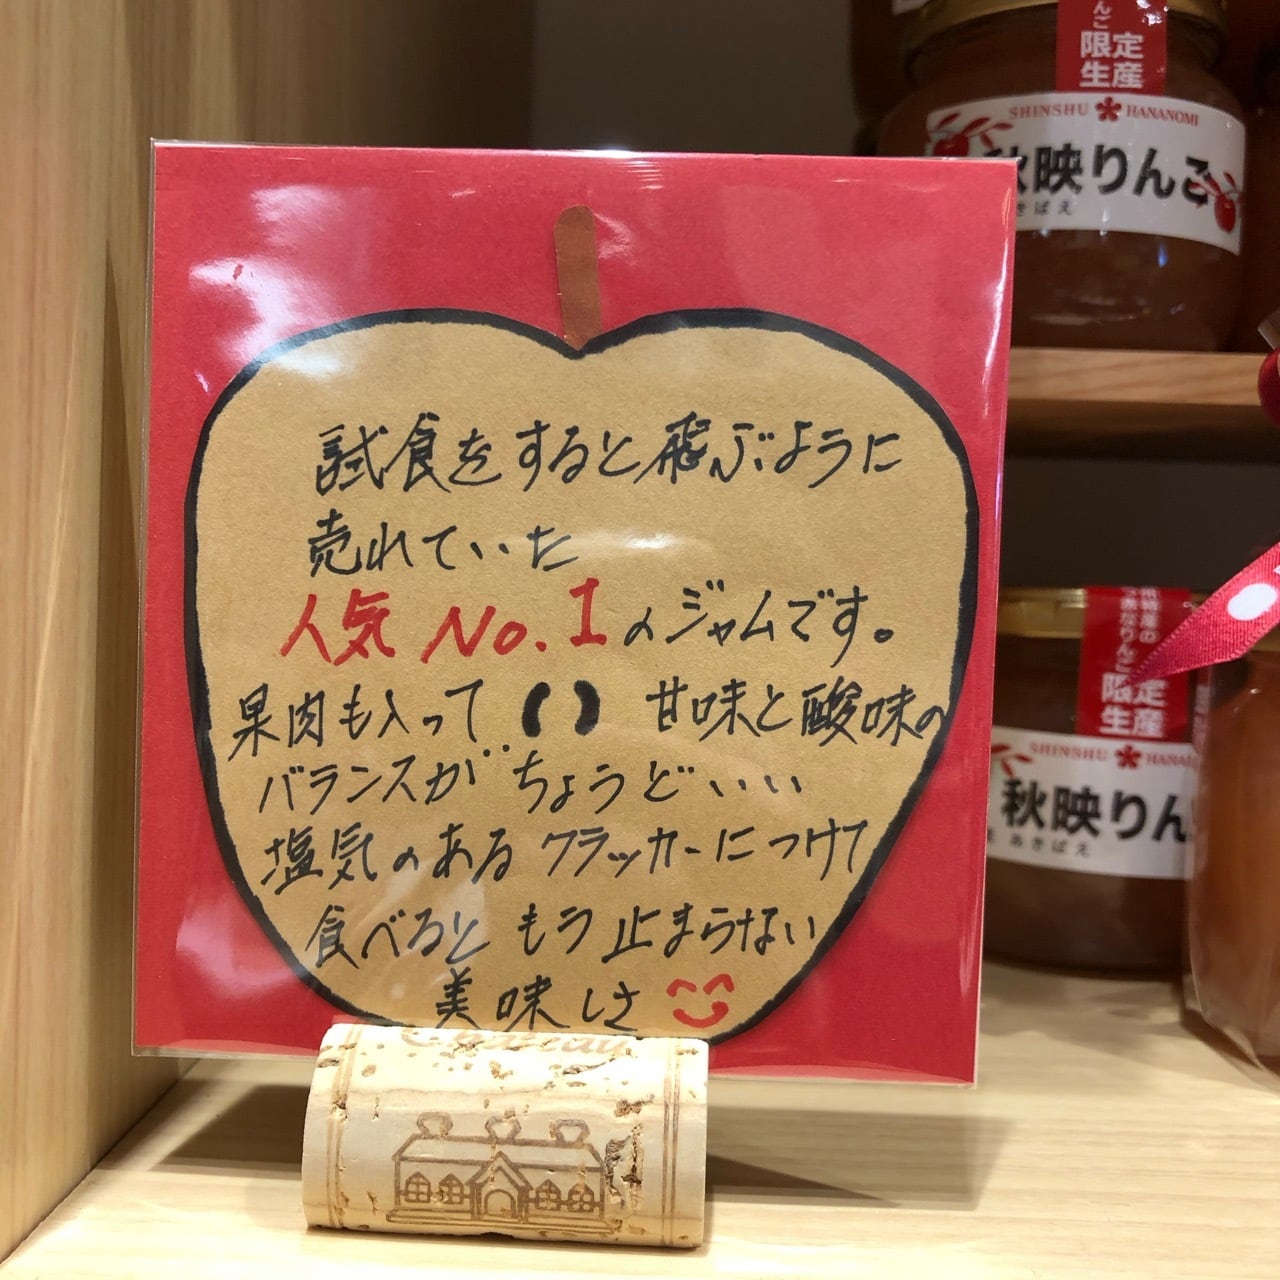 試食をすると飛ぶように
売れていた
人気No.1のジャムです。
果肉も入って 甘味と酸味の
バランスがちょうどいい
塩気のあるクラッカーにつけて
食べるともう止まらない
美味しさ
Chateau
限定
生産
SHINSHU HANANOMI
秋映りんご
きばえ
限定
生産
SHINSHU HANAN
秋映りん
あきばえ